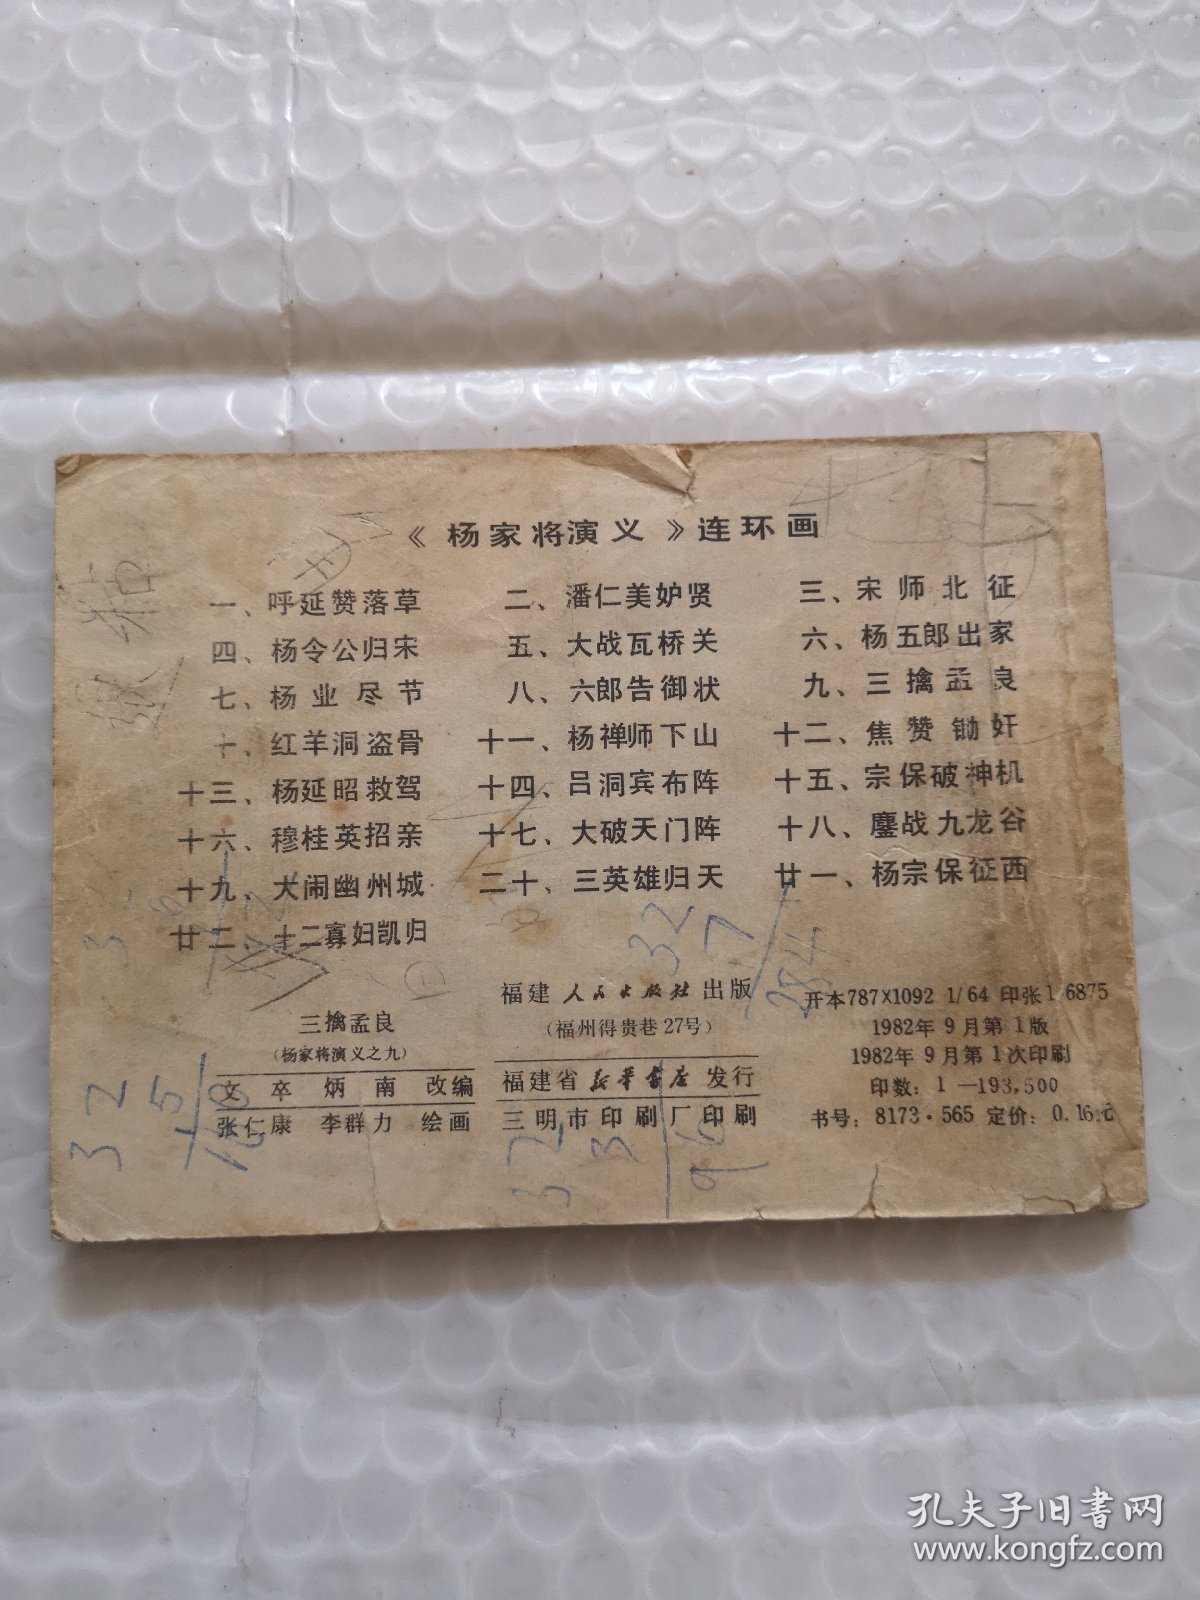 《杨家将演义》连环画
一、呼延赞落草 二、潘仁美妒贤 三、宋师北征
四、杨令公归宋 五、大战瓦桥关 六、杨五郎出家
七、杨业尽节 八、六郎告御状 九、三擒孟良
十、红羊洞盗骨 十一、杨禅师下山 十二、焦赞锄奸
十三、杨延昭救驾 十四、吕洞宾布阵 十五、宗保破神机
十六、穆桂英招亲 十七、大破天门阵 十八、鏖战九龙谷
十九、大闹幽州城 二十、三英雄归天 廿一、杨宗保征西
廿二、十二寡妇凯归
三擒孟良
(杨家将演义之九)
文卒 炳南 改编
张仁康 李群力 绘画
福建人民出版社出版
(福州得贵巷27号)
福建省新华书店发行
三明市印刷厂印刷
开本787×1092 1/64 印张1.6875
1982年9月第1版
1982年9月第1次印刷
印数：1—193,500
书号：8173·565 定价：0.16元
32
7
32
5
160
32
3
96
孔夫子旧书网
www.kongfz.com